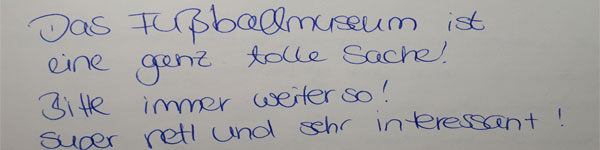 Das Fußballmuseum ist
eine ganz tolle Sache!
Bitte immer weiter so!
super nett und sehr interessant!